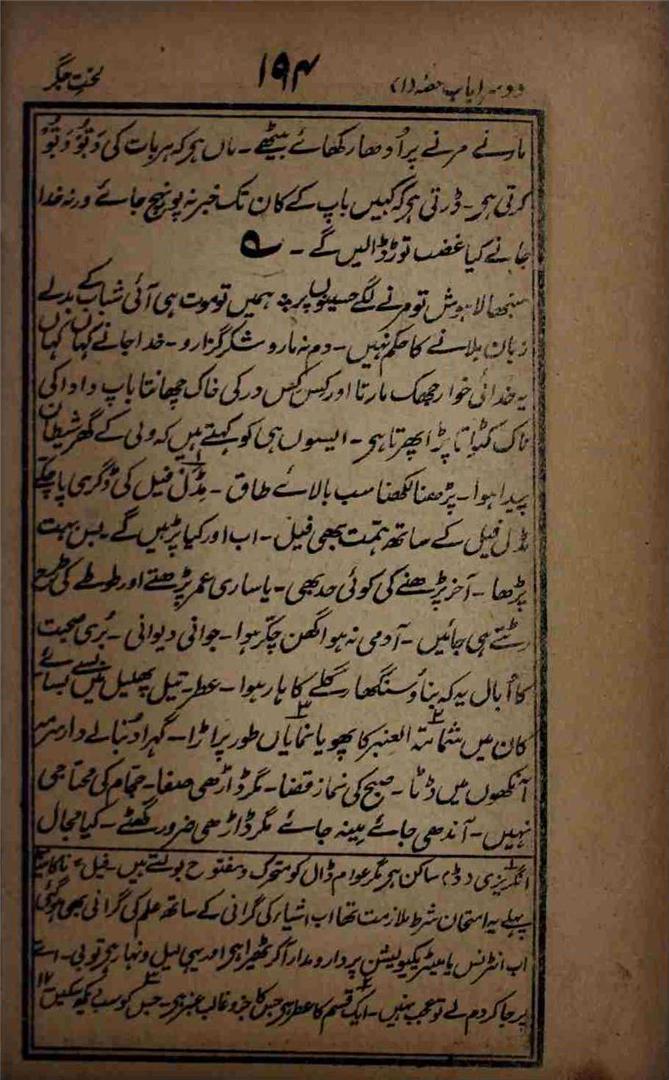 دوسرا باب حصہ (۱) ۱۹۴ لختِ جگر
مارنے مرنے پر اُدھار کھائے بیٹھے۔ ماں ہو کہ ہر بات کی وَقَوْ وَقَوْ
کرتی ہو۔ ڈرتی ہو کہ کہیں باپ کے کان تک خبر نہ پہونچ جائے ورنہ خدا
جانے کیا غضب توڑ ڈالیں گے۔
سنبھالا ہوش تو مرنے لگے حسینوں پر ؛ ہمیں تو موت ہی آئی شباب کے بدلے
زبان ہلانے کا حکم نہیں۔ دم نہ مارو شکر گزارو۔ خدا جانے کہاں کہاں
یہ خدائی خوار جھک مارتا اور کس کس در کی خاک چھانتا باپ دادا کی
خاک اڑاتا پڑا پھرتا ہو۔ ایسوں ہی کو کہتے ہیں کہ ولی کے گھر شیطان
پیدا ہوا۔ پڑھنا لکھنا سب بالائے طاق۔ مڈل فیل کی ڈگری پا چکے
مڈل فیل کے ساتھ ہمت بھی فیل۔ اب اور کیا پڑہیں گے بس بہت
پڑھا۔ آخر پڑھنے کی کوئی حد بھی۔ یا ساری عمر پڑھتے اور طوطے کی طرح
رٹتے ہی جائیں۔ آدمی نہ ہوا گھن چکر ہوا۔ جوانی دیوانی۔ بُری صحبت
کا اُبال یہ کہ بناؤ سنگھار گلے کا ہار ہوا۔ عطر تیل پھلیل میں بسے بسائے
کان میں شمامتہ العنبر کا پھویا نمایاں طور پر اڑا۔ گہرا دُنبالے دار سرمہ
آنکھوں میں ڈٹا۔ صبح کی نماز قضا۔ مگر ڈاڑھی صفا۔ حجام کی محتاجی
نہیں۔ آندھی جائے مینہ جائے مگر ڈاڑھی ضرور گھٹے۔ کیا مجال
انگریزی (ڈ) ساکن ہو مگر عوام ڈال کو متحرک و مفتوح بولتے ہیں۔ فیل = ناکامیاب
پہلے یہ امتحان شرط ملازمت تھا اب اشیاء کی گرانی کے ساتھ علم کی گرانی بھی ہو گئی
اب انٹرنس یا میٹریکیولیشن پر دار و مدار آکر ٹھیرا ہو اور یہی لیل و نہار ہو تو بی۔ اے
پر جا کر دم لے تو تعجب نہیں۔ ایک قسم کا عطر ہو جس کا جزو غالب عنبر ہو۔ جس کو سب دیکھ سکیں ۱۲